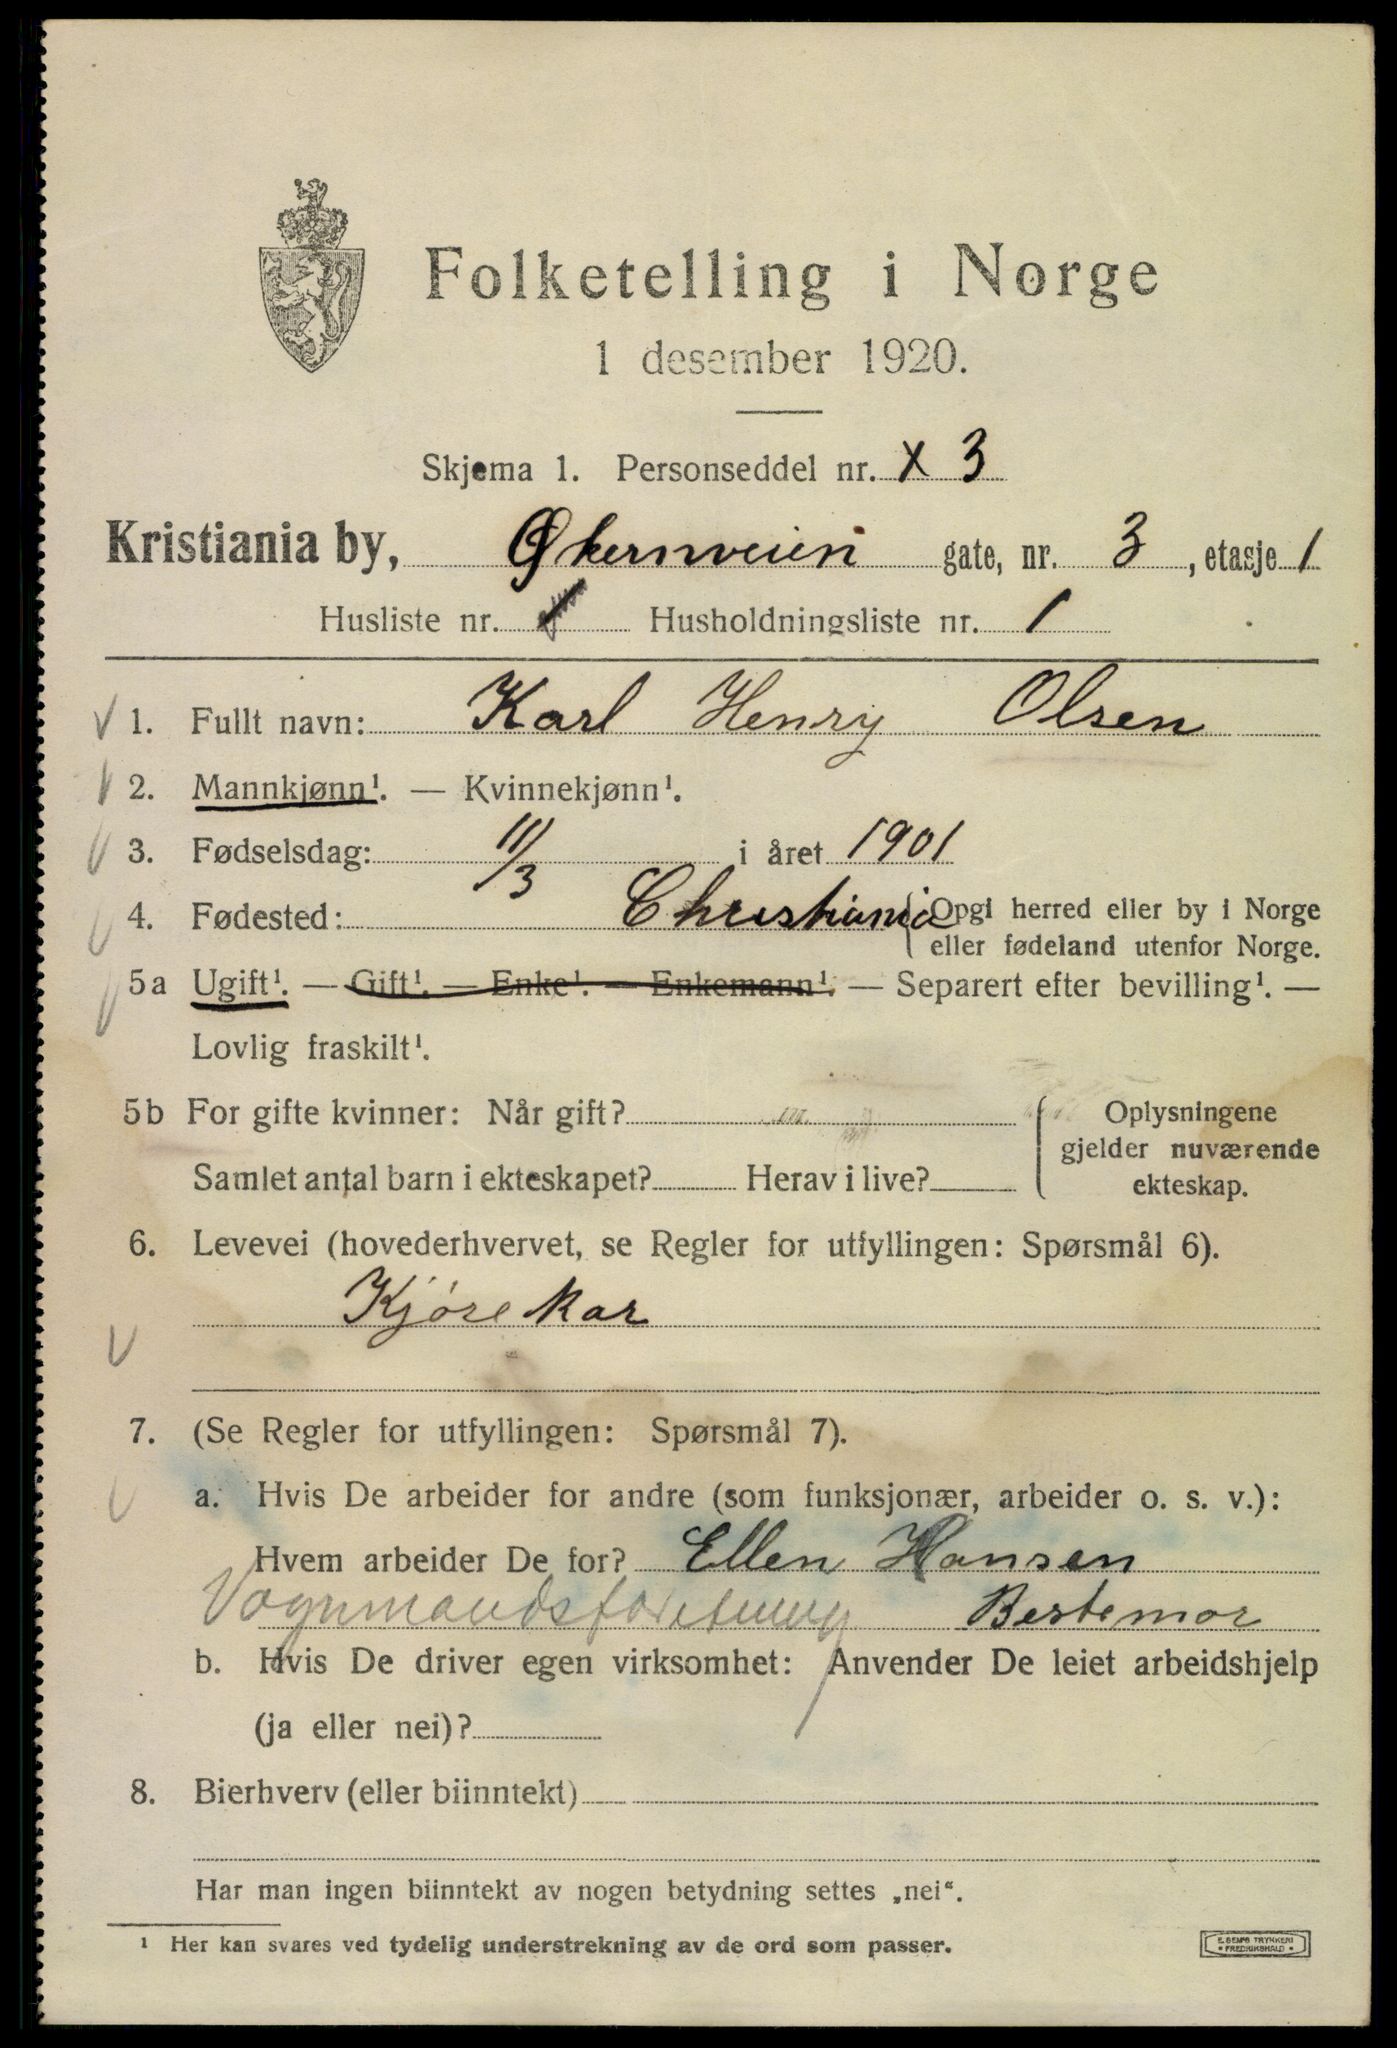 Folketelling i Norge
1 desember 1920.
Skjema 1. Personseddel nr. x 3
Kristiania by, Økernveien gate, nr. 3, etasje 1
Husliste nr. 1 Husholdningsliste nr. 1
1. Fullt navn: Karl Henry Olsen
2. Mannkjønn¹. — Kvinnekjønn¹.
3. Fødselsdag: 11/3 i året 1901
4. Fødested: Christiania Opgi herred eller by i Norge
eller fødeland utenfor Norge.
5a Ugift¹. — Gift¹. — Enke¹. — Enkemann¹. — Separert efter bevilling¹. —
Lovlig fraskilt¹.
5b For gifte kvinner: Når gift? Oplysningene
gjelder nuværende
Samlet antal barn i ekteskapet? Herav i live? ekteskap.
6. Levevei (hovederhvervet, se Regler for utfyllingen: Spørsmål 6).
Kjørekar
7. (Se Regler for utfyllingen: Spørsmål 7).
a. Hvis De arbeider for andre (som funksjonær, arbeider o. s. v.):
Hvem arbeider De for? Ellen Hansen
Vognmandsforetning Bestemor
b. Hvis De driver egen virksomhet: Anvender De leiet arbeidshjelp
(ja eller nei)?
8. Bierhverv (eller biinntekt) —
Har man ingen biinntekt av nogen betydning settes „nei“.
¹ Her kan svares ved tydelig understrekning av de ord som passer.
E. SEM'S TRYKKERI
• FREDRIKSHALD •